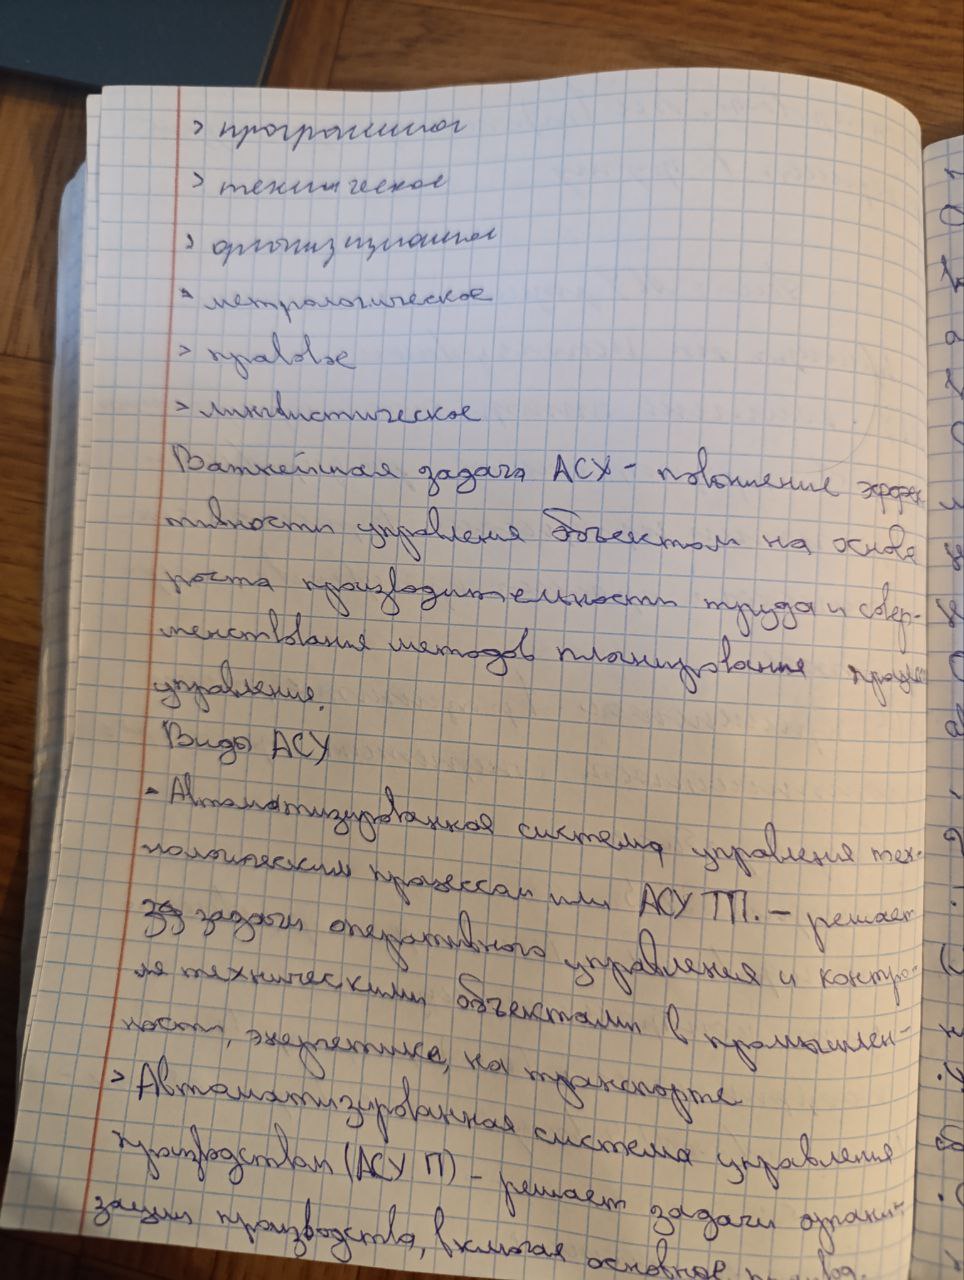 > программное
> техническое
> организационное
> метрологическое
> правовое
> лингвистическое
Важнейшая задача АСУ - повышение эффек
тивности управления объектом на основе
роста производительности труда и совер-
шенствования методов планирования процесса
управления.
Виды АСУ
- Автоматизированная система управления тех-
нологическим процессом или АСУ ТП. - решает
задачи оперативного управления и контро-
ля техническими объектами в промышлен-
ности, энергетике, на транспорте
> Автоматизированная система управления
производством (АСУ П) - решает задачи органи-
зации производства, включая основное